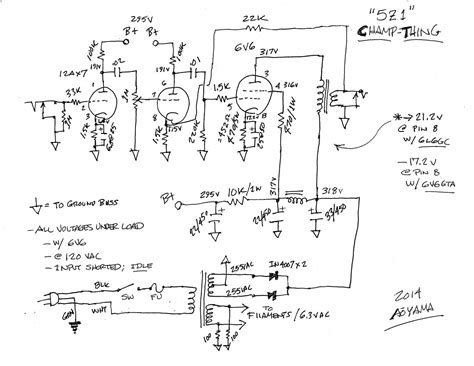 "5Z1"
CHAMP-THING
295V
B+
B+
22K
317V
6V6
12AX7
100K
100K
.02
.01
33K
1.5K
1.5K
1.5V
3
4
316V
5
8
470/1W
* → 21.2V
@ PIN 8
W/ 6L6GC
-17.2V
@ PIN 8
W/ 6V6GTA
= TO GROUND BUSS
- ALL VOLTAGES UNDER LOAD
- W/ 6V6
- @ 120 VAC
- INPUT SHORTED; IDLE
B+
295V
10K/2W
317V
318V
22/450
22/450
33/450
BLK
SW
FU
WHT
GRN
255VAC
255VAC
IN4007 x 2
TO
FILAMENTS/6.3VAC
100
100
2014
AOYAMA